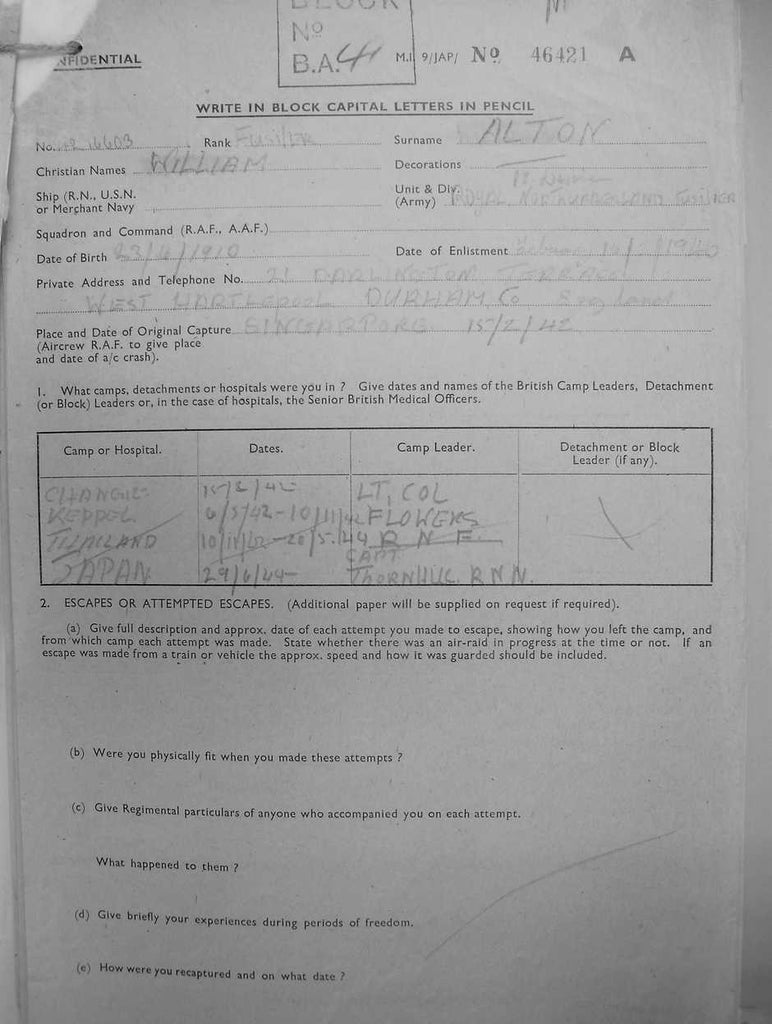 BLOCK
No
B.A. 4
NFIDENTIAL
M.I 9/JAP/ No 46421 A
WRITE IN BLOCK CAPITAL LETTERS IN PENCIL
No. Rank Fusilier Surname ALTON
Christian Names WILLIAM Decorations
Ship (R.N., U.S.N.
or Merchant Navy
Unit & Div.
(Army) ROYAL NORTHUMBERLAND FUSILIER
Squadron and Command (R.A.F., A.A.F.)
Date of Birth 23/4/1910 Date of Enlistment 1940
Private Address and Telephone No. 21 DARLINGTON TERRACE
WEST HARTLEPOOL DURHAM Co England
Place and Date of Original Capture SINGAPORE 15/2/42
(Aircrew R.A.F. to give place
and date of a/c crash).
1. What camps, detachments or hospitals were you in ? Give dates and names of the British Camp Leaders, Detachment
(or Block) Leaders or, in the case of hospitals, the Senior British Medical Officers.
Camp or Hospital. Dates. Camp Leader. Detachment or Block
Leader (if any).
CHANGIE 15/2/42 LT, COL
KEPPEL 6/5/42-10/11/42 FLOWERS
THAILAND 10/11/42-20/5/44 R N F
CAPT
JAPAN 29/6/44- R N N.
2. ESCAPES OR ATTEMPTED ESCAPES. (Additional paper will be supplied on request if required).
(a) Give full description and approx. date of each attempt you made to escape, showing how you left the camp, and
from which camp each attempt was made. State whether there was an air-raid in progress at the time or not. If an
escape was made from a train or vehicle the approx. speed and how it was guarded should be included.
(b) Were you physically fit when you made these attempts ?
(c) Give Regimental particulars of anyone who accompanied you on each attempt.
What happened to them ?
(d) Give briefly your experiences during periods of freedom.
(e) How were you recaptured and on what date ?